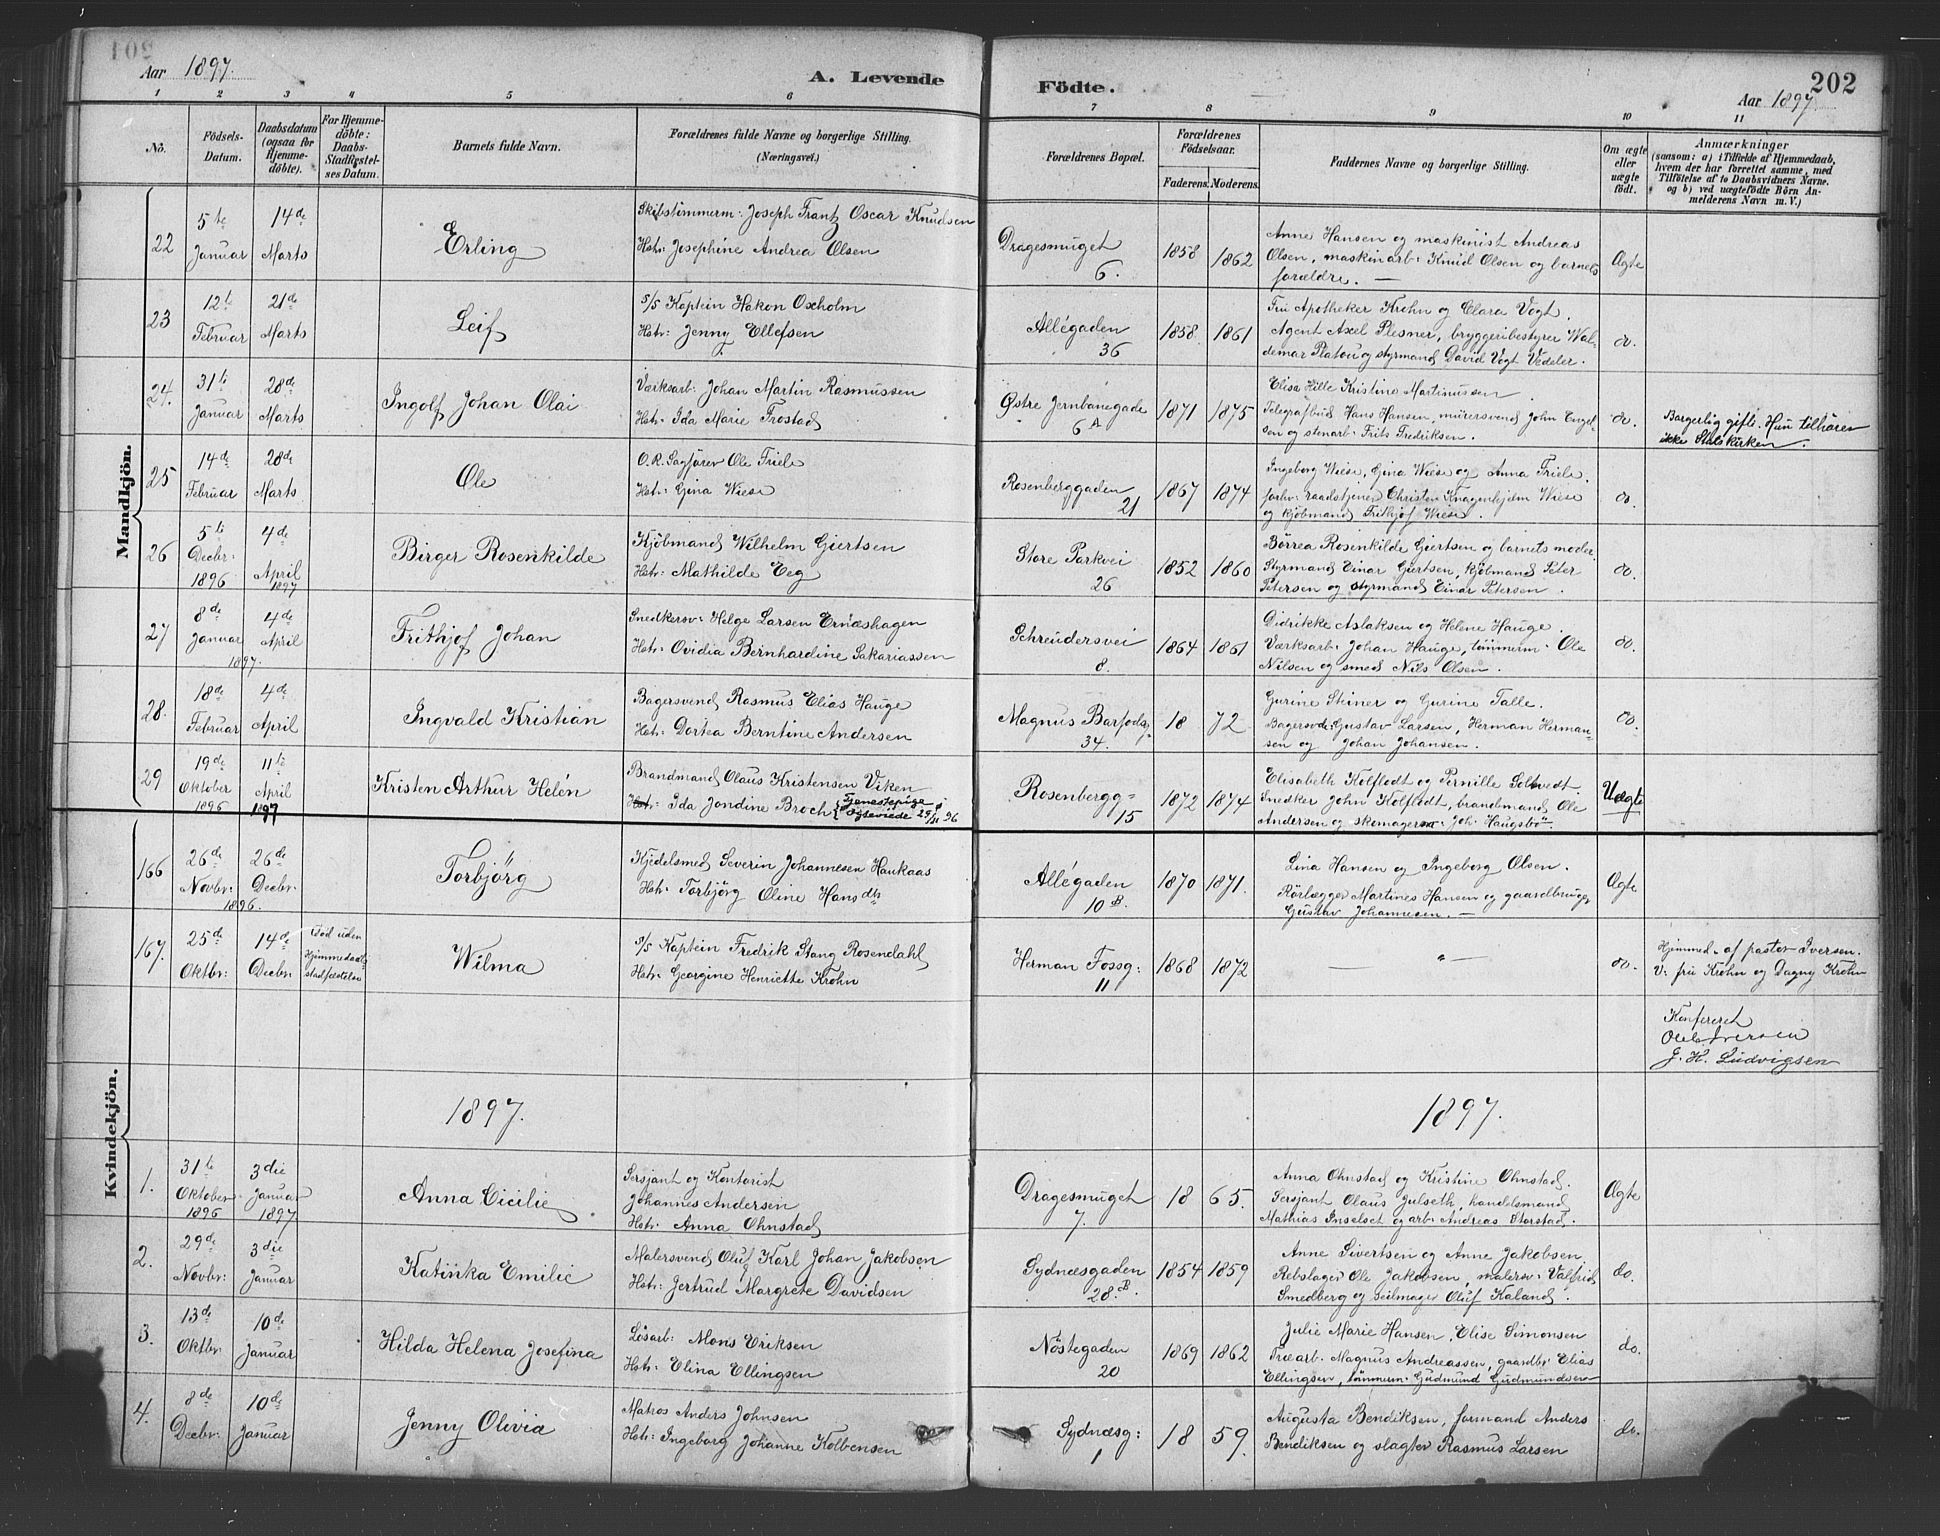 Aar 1897. A. Levende Födte. Aar 1897. 202
1 2 3 4 5 6 7 8 9 10 11
No.
Födsels-Datum.
Daabsdatum (ogsaa for Hjemme-döbte).
For Hjemme-döbte: Daabs-Stadfæstel-ses Datum.
Barnets fulde Navn.
Forældrenes fulde Navne og borgerlige Stilling.
(Næringsvei.)
Forældrenes Bopæl.
Forældrenes Födselsaar.
Faderens. Moderens.
Faddernes Navne og borgerlige Stilling.
Om ægte eller uægte födt.
Anmærkninger
(saasom: a) i Tilfælde af Hjemmedaab,
hvem der har forrettet samme, med
Tilföielse af to Daabsvidners Navne.
og b) ved uægtefödte Börn An-
melderens Navn m. V.)
Mandkjön.
22 5te Januar 14de Marts Erling
Skibstimmerm: Joseph Frantz Oscar Knudsen
Hstr: Josephine Andrea Olsen
Dragesmuget 6. 1858 1862
Anne Hansen og maskinist Andreas
Olsen, maskinarb: Knud Olsen og barnets
forældre. —
Ægte
23 12te Februar 21de Marts Leif
S/S Kaptein Hakon Oxholm
Hstr: Jenny Ellefsen
Allégaden 36 1858 1861
Fru Apotheker Krohn og Clara Vogt.
Agent Axel Plesner, bryggeribestyrer Wal-
demar Platou og styrmand David Vogt Vedeler.
do.
24. 31te Januar 28de Marts Ingolf Johan Olai
Værksarb: Johan Martin Rasmussen
Hstr: Ida Marie Frostad
Østre Jernbanegade 6A 1871 1875
Elisa Hille Kristine Martinussen.
Telegrafbud Hans Hansen, murersvend John Engel-
sen og stenarb: Frits Fredriksen.
do.
Borgerlig gifte. Hun tilhører
ikke Statskirken.
25 14de Februar 28de Marts Ole
O.R. Sagfører Ole Friele
Hstr: Gina Wiese
Rosenberggaden 21 1867 1874
Ingeborg Wiese, Gina Wiese og Anna Friele.
forhv: raadstjener Christen Knagenhjelm Wiese
og kjøbmand Frithjof Wiese.
do.
26 5te Decbr: 1896 4de April 1897 Birger Rosenkilde
Kjøbmand Wilhelm Giertsen
Hstr: Mathilde Eeg
Store Parkvei 26 1852 1860
Börrea Rosenkilde Giertsen og barnets moder.
Styrmand Einar Giertsen, kjøbmand Peter
Petersen og styrmand Einar Petersen.
do.
27 8de Januar 1897. 4de April Frithjof Johan
Snedkersv: Helge Larsen Ernæshagen
Hstr: Ovidia Bernhardine Sakariassen
Schreudersvei 8. 1864 1861
Didrikke Aslaksen og Helene Hauge.
Værksarb: Johan Hauge, tömmerm: Ole
Nilsen og smed Nils Olsen.
do.
28. 18de Februar 4de April Ingvald Kristian
Bagersvend Rasmus Elias Hauge
Hstr: Dortea Berntine Andersen
Magnus Barfodsg 34. 18 72.
Gurine Steiner og Gurine Talle.
Bagersvde: Gustav Larsen, Herman Herman-
sen og Johan Johansen.
do.
29 19de Oktober 1896 11te April 1897 Kristen Arthur Helén
Brandmand Olaus Kristensen Viken
Hstr: Ida Jondine Broch { Tjenestepige Ægteviede 29/11 96
Rosenbergg= 15 1872 1874
Elisabeth Kolflodt og Pernille Soltvedt
Snedker John Kolflodt, brandmand Ole
Andersen og skomager: Joh. Haugsbö.
Uægte
Kvindekjön.
166 26de Novbr: 1896. 26de Decbr. Torbjörg
Kjedelsmed Severin Johannesen Haukaas
Hstr: Torbjörg Oline Hansdtr
Allégaden 10B. 1870 1871.
Lina Hansen og Ingeborg Olsen.
Rörlægger Martines Hansen og gaardbrug
Gustav Johannesen. —
Ægte
167. 25de Oktbr: 14de Decbr. Död uden Hjemmedaabs stadfæstelse Wilma
S/S Kaptein Fredrik Stang Rosendahl
Hstr: Georgine Henriette Krohn
Herman Fossg: 11 1868 1872
— " —
do.
Hjemmed: af pastor Iversen.
V: fru Krohn og Dagny Krohn
Konfereret
Ole Iversen
J. H. Ludvigsen
1897. 1897.
1. 31te Oktober 1896 3die Januar 1897 Anna Cicilie
Sersjant og Kontorist
Johannes Andersen
Hstr: Anna Ohnstad
Dragesmuget 7. 18 65.
Anna Ohnstad og Kristine Ohnstad.
Sersjant Olaus Julseth, handelsmand
Mathias Inselset og arb: Andreas Storstad.
Ægte
2. 29de Novbr: 3die Januar Katinka Emilie
Malersvend Oluf Karl Johan Jakobsen
Hstr: Jertrud Margrete Davidsen
Sydnæsgaden 28.B. 1854 1859
Anne Sivertsen og Anne Jakobsen
Rebslager Ole Jakobsen, malersv: Valfrid
Smedberg og seilmager Oluf Kaland.
do.
3. 13de Oktbr 10de Januar Hilda Helena Josefina
Lösarb: Mons Eriksen
Hstr: Elina Ellingsen
Nöstegaden 20 1869 1862
Julie Marie Hansen, Elise Simonsen
Træarb. Magnus Andreassen, gaardbr: Elias
Ellingsen, tömmerm: Gudmund Gudmundsen
do.
4. 8de Decbr: 10de Januar Jenny Olivia
Matros Anders Johnsen
Hstr: Ingeborg Johanne Kolbensen
Sydnæsg: 1 18 59.
Augusta Bendiksen, formand Anders
Bendiksen og slagter Rasmus Larsen
do.